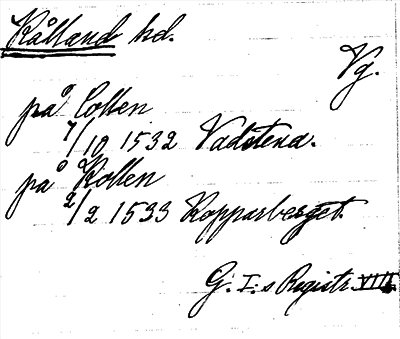 Kålland hd.
Vg.
på Collen
7/10 1532 Vadstena.
på Kollen
2/2 1533 Kopparberget.
G. I:s Registr. VIII